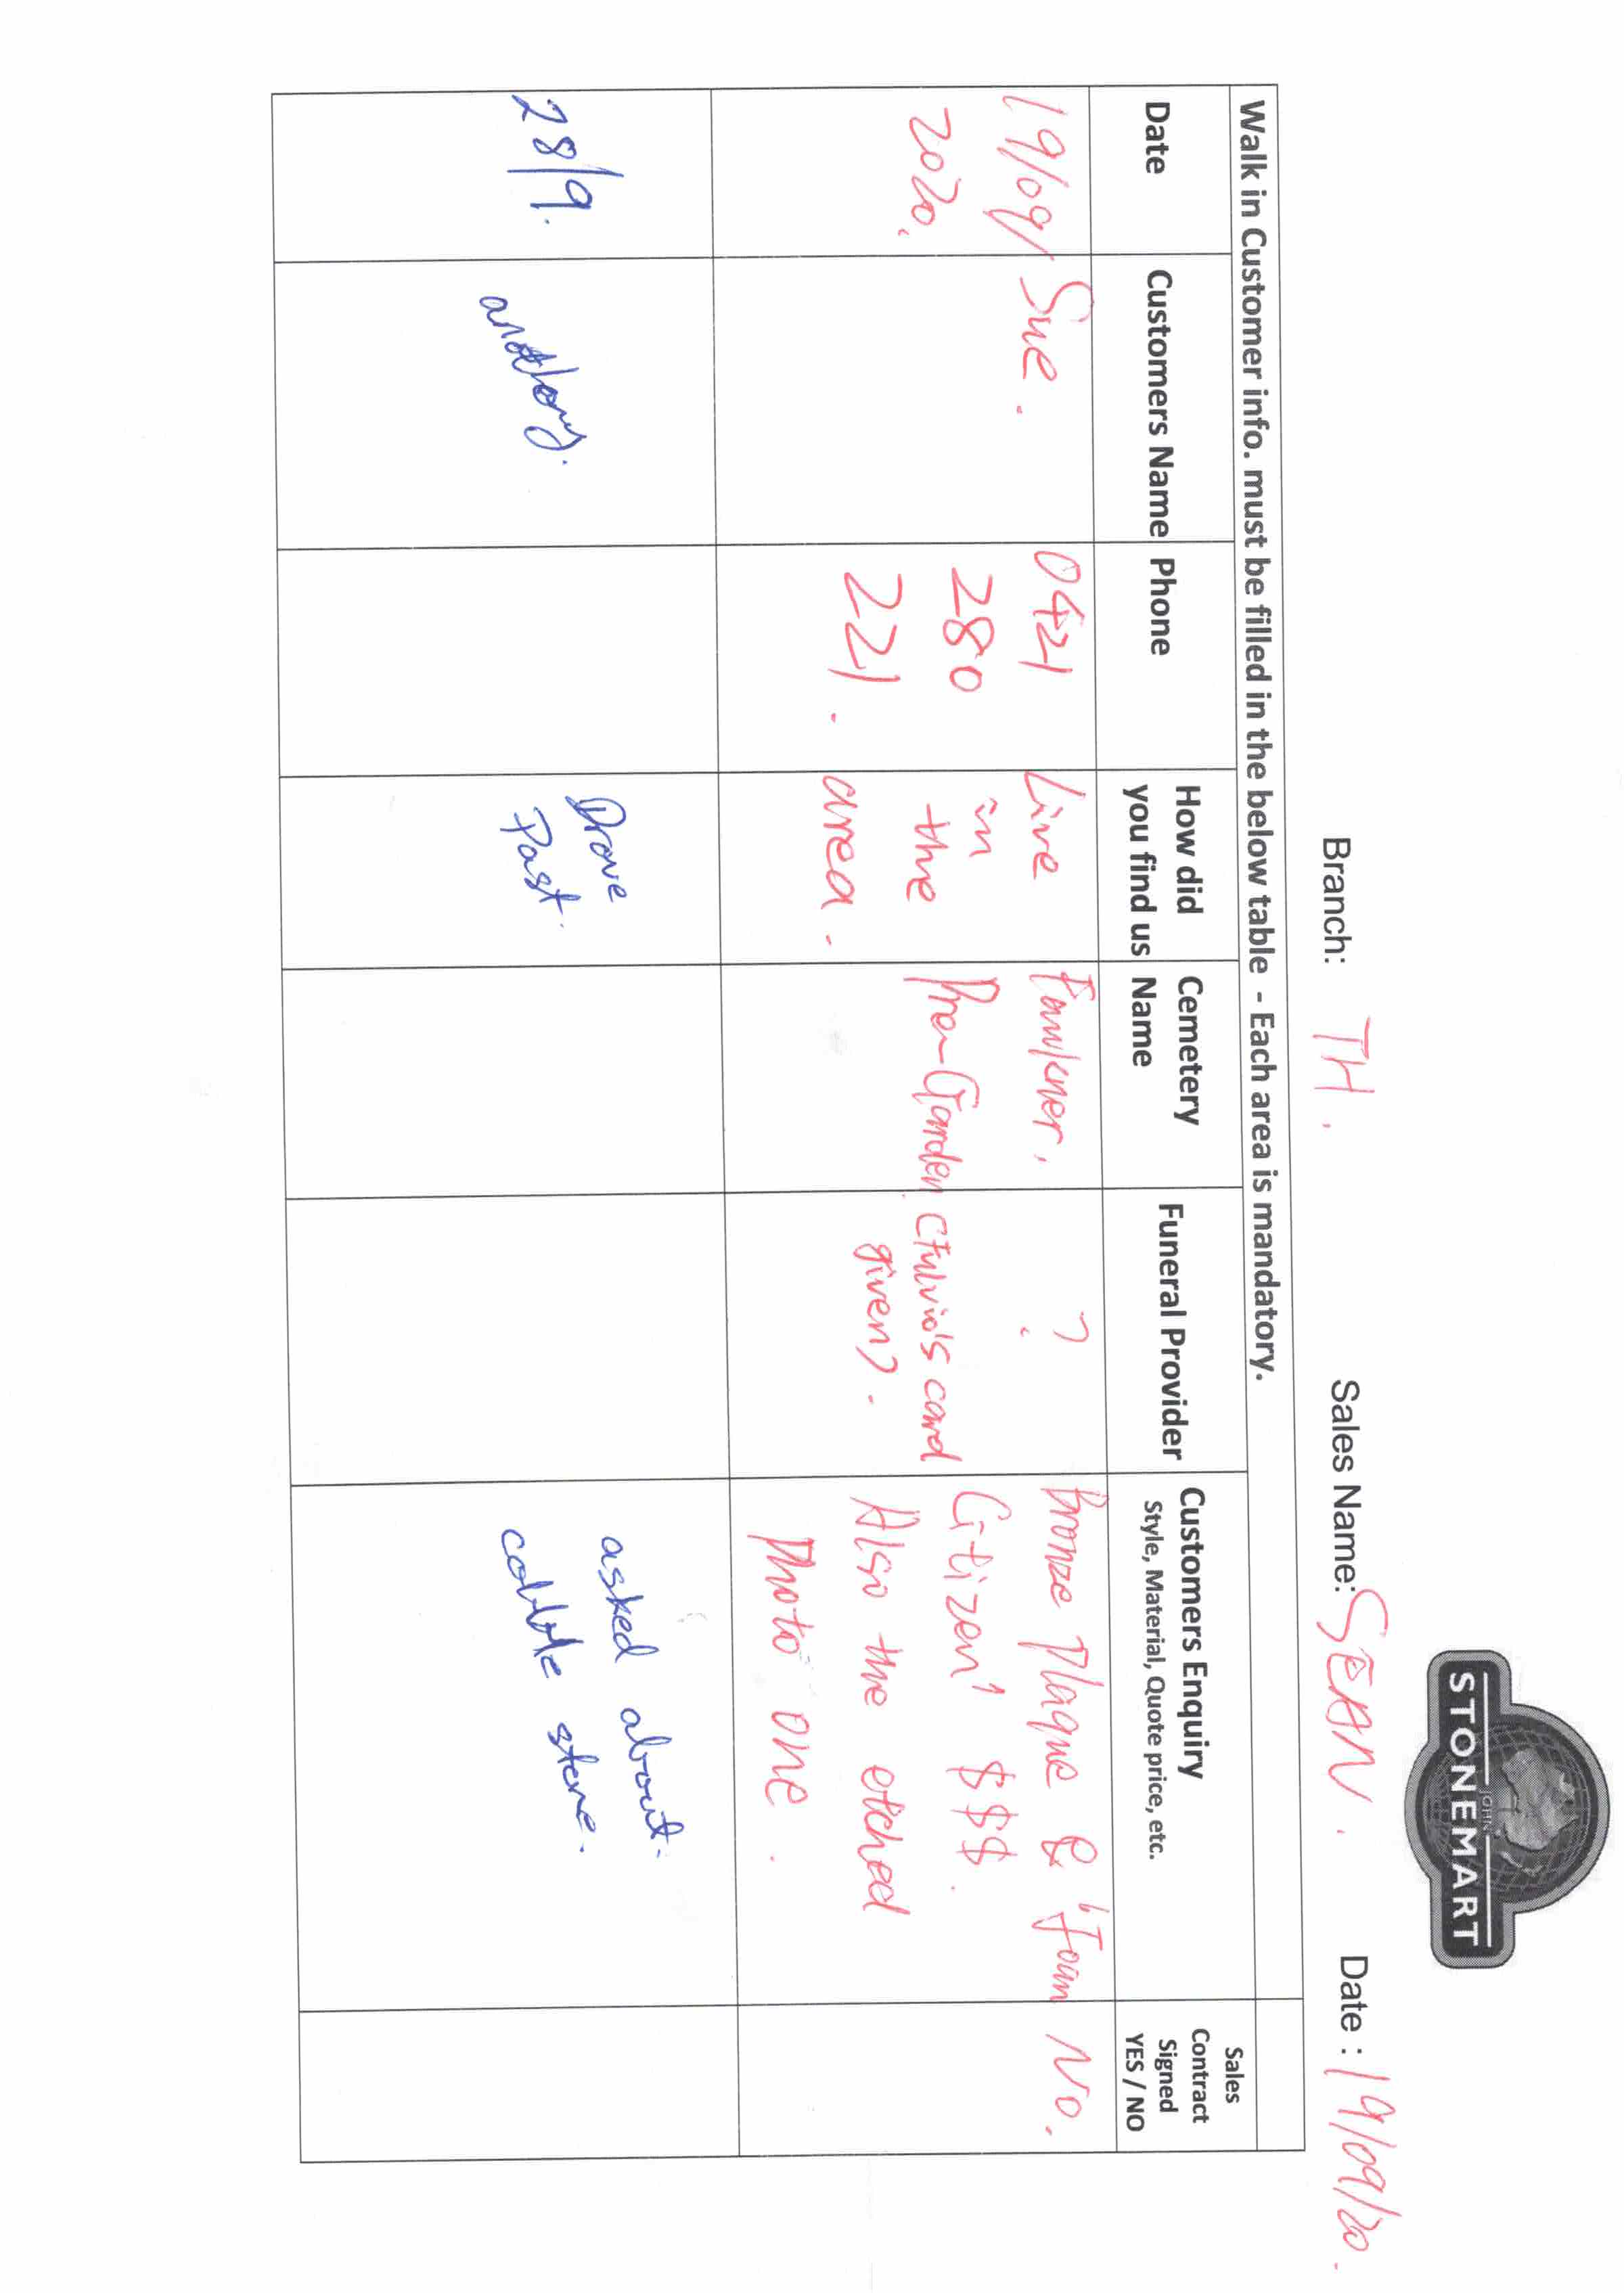 JOHN
STONEMART
Branch: TH. Sales Name: SEAN. Date : 19/09/20.
Walk in Customer info. must be filled in the below table - Each area is mandatory.
Date
Customers Name
Phone
How did
you find us
Cemetery
Name
Funeral Provider
Customers Enquiry
Style, Material, Quote price, etc.
Sales
Contract
Signed
YES / NO
19/09/
2020.
Sue.
0421
280
221.
Live
in
the
area.
Fawkner.
Pre-Garden
?
(Fulvio's card
given).
Bronze Plaque & 'Joan
Citizen' $$$.
Also the etched
Photo one.
No.
28/9.
anthony.
Drove
Past.
asked about
cobble stone.